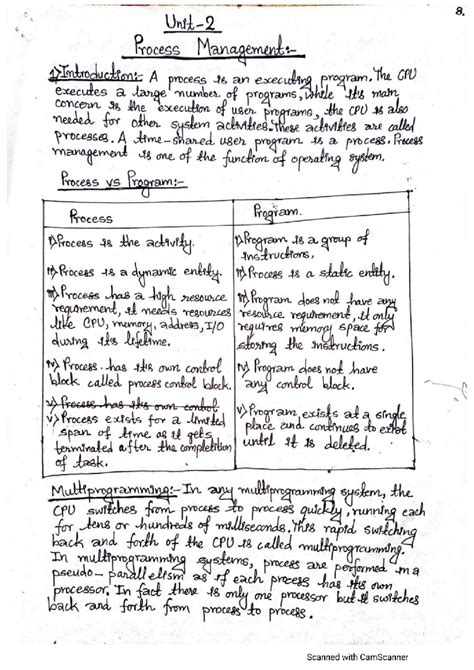 8.
Unit-2
Process Management:-
1) Introduction:- A process is an executing program. The CPU
executes a large number of programs, while its main
concern is the execution of user programs, the CPU is also
needed for other system activities. These activities are called
processes. A time-shared user program is a process. Process
management is one of the function of operating system.
Process vs Program:-
Process
i) Process is the activity.
ii) Process is a dynamic entity.
iii) Process has a high resource
requirement, it needs resources
like CPU, memory, address, I/O
during its lifetime.
iv) Process has its own control
block called process control block.
v) Process has its own control
v) Process exists for a limited
span of time as it gets
terminated after the completition
of task.
Program.
i) Program is a group of
instructions.
ii) Process is a static entity.
iii) Program does not have any
resource requirement, it only
requires memory space for
storing the instructions.
iv) Program does not have
any control block.
v) Program exists at a single
place and continues to exist
until it is deleted.
Multiprogramming:- In any multiprogramming system, the
CPU switches from process to process quickly, running each
for tens or hundreds of milliseconds. This rapid switching
back and forth of the CPU is called multiprogramming.
In multiprogramming systems, process are performed in a
pseudo-parallelism as if each process has its own
processor. In fact there is only one processor but it switches
back and forth from process to process.
Scanned with CamScanner